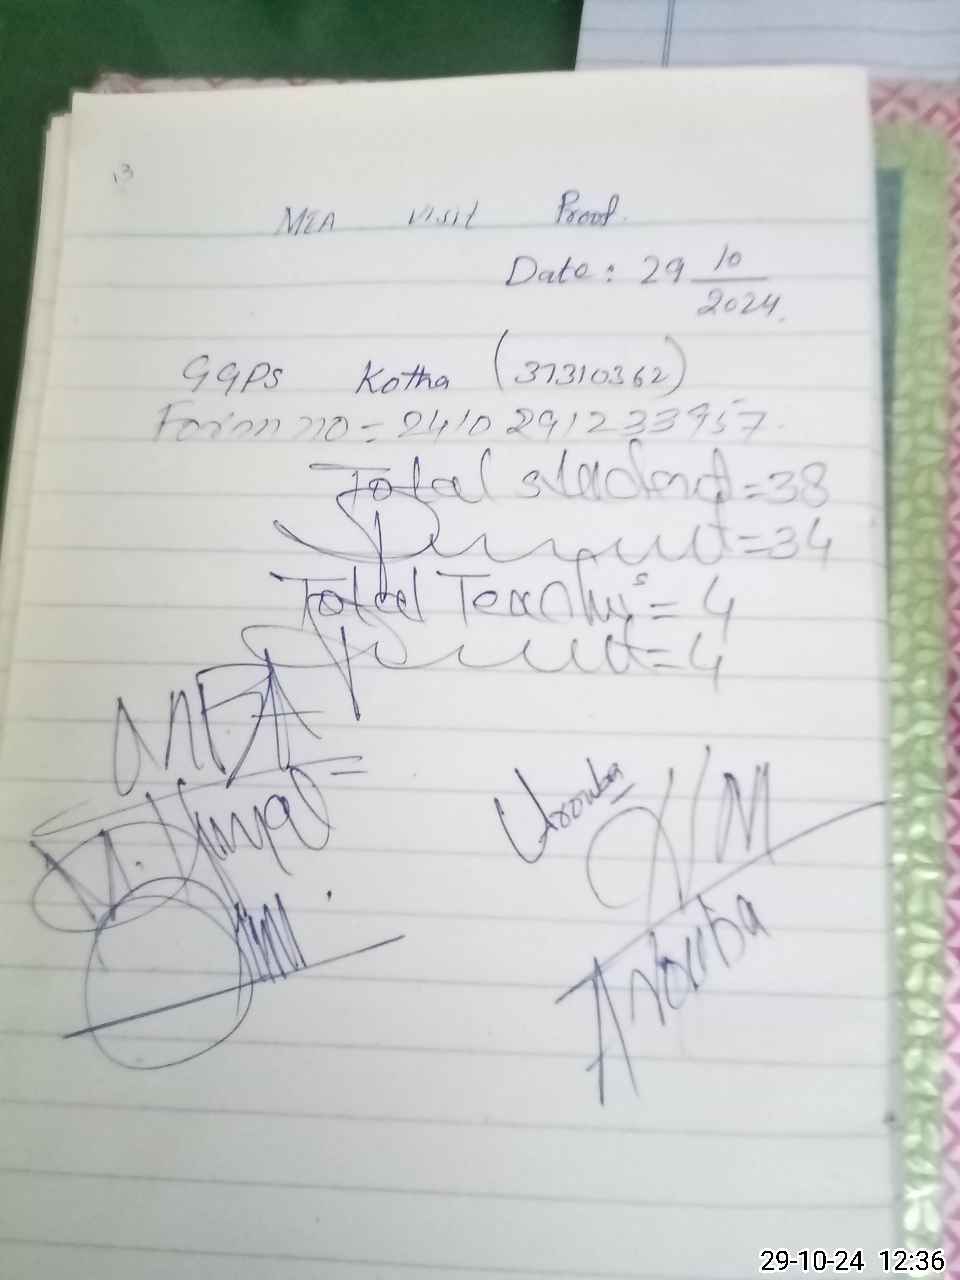 13
MEA visit Proof.
Date: 29 10/2024.
GGPS Kotha (37310362)
Form no = 2410291233957.
Total student = 38
Present = 34
Total Teachers = 4
Present = 4
MEA
Urooba
H/M
Arouba
29-10-24 12:36